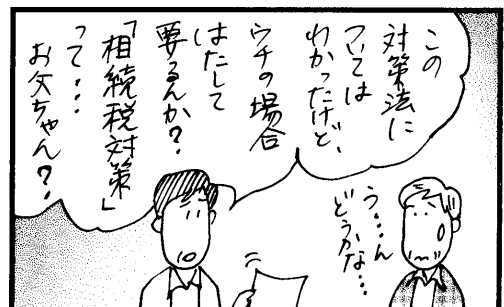 この
対策法に
ついては
わかったけど、
ウチの場合
はたして
要るんか？
「相続税対策」
って・・・
お父ちゃん？
う・・・ん
どうかな・・・